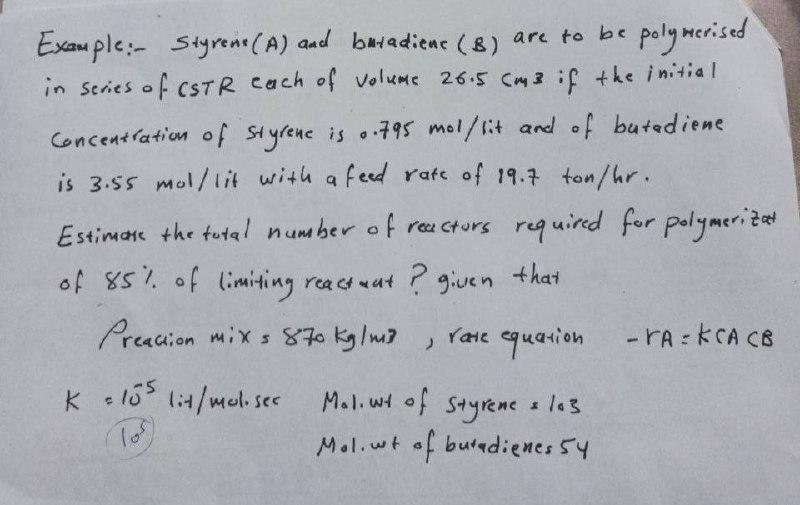 Example:- Styrene(A) and butadiene (B) are to be polymerised
in series of CSTR each of volume 26.5 cm3 if the initial
Concentration of styrene is 0.795 mol/lit and of butadiene
is 3.55 mol/lit with a feed rate of 19.7 ton/hr.
Estimate the total number of reactors required for polymerizat
of 85% of limiting reactant ? given that
ρreacion mix = 870 kg/m3 , rate equation -rA = KCACB
K = 10^-5 lit/mol.sec Mol.wt of styrene = 103
10^5
Mol.wt of butadiene = 54